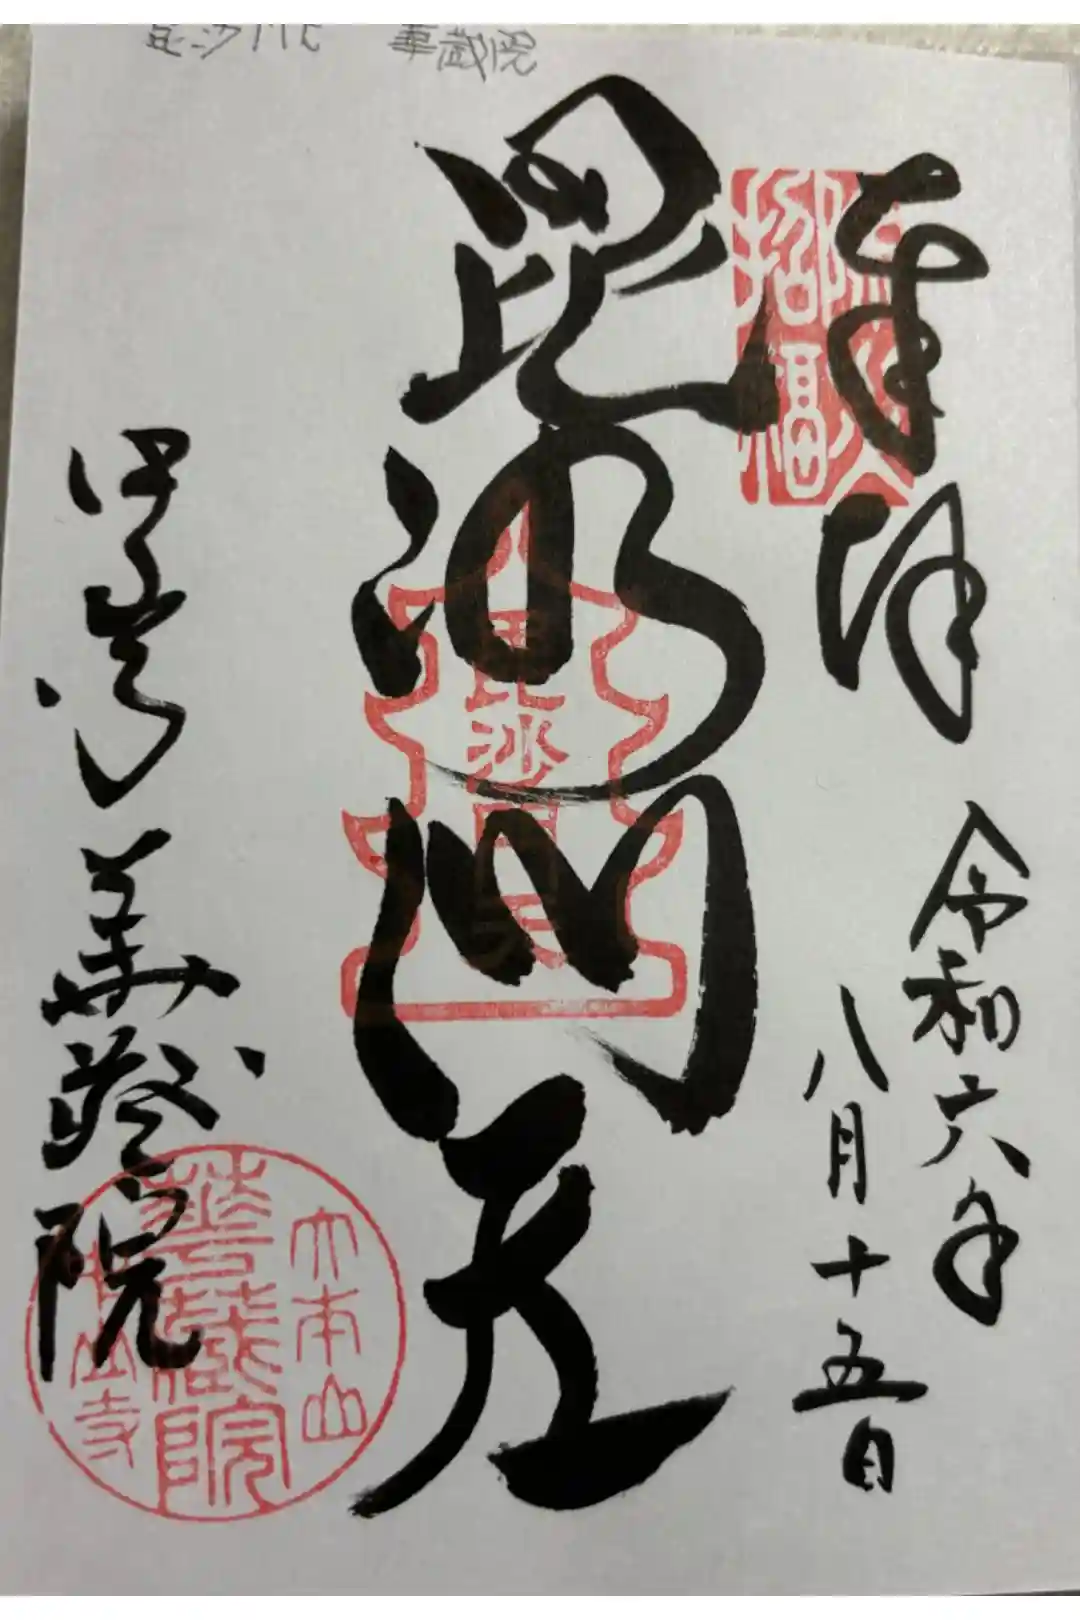 毘沙門天 華蔵院
奉拝
令和六年
八月十五日
招福
毘沙門天
毘沙門天
華蔵院
大本山
華蔵院
中山寺